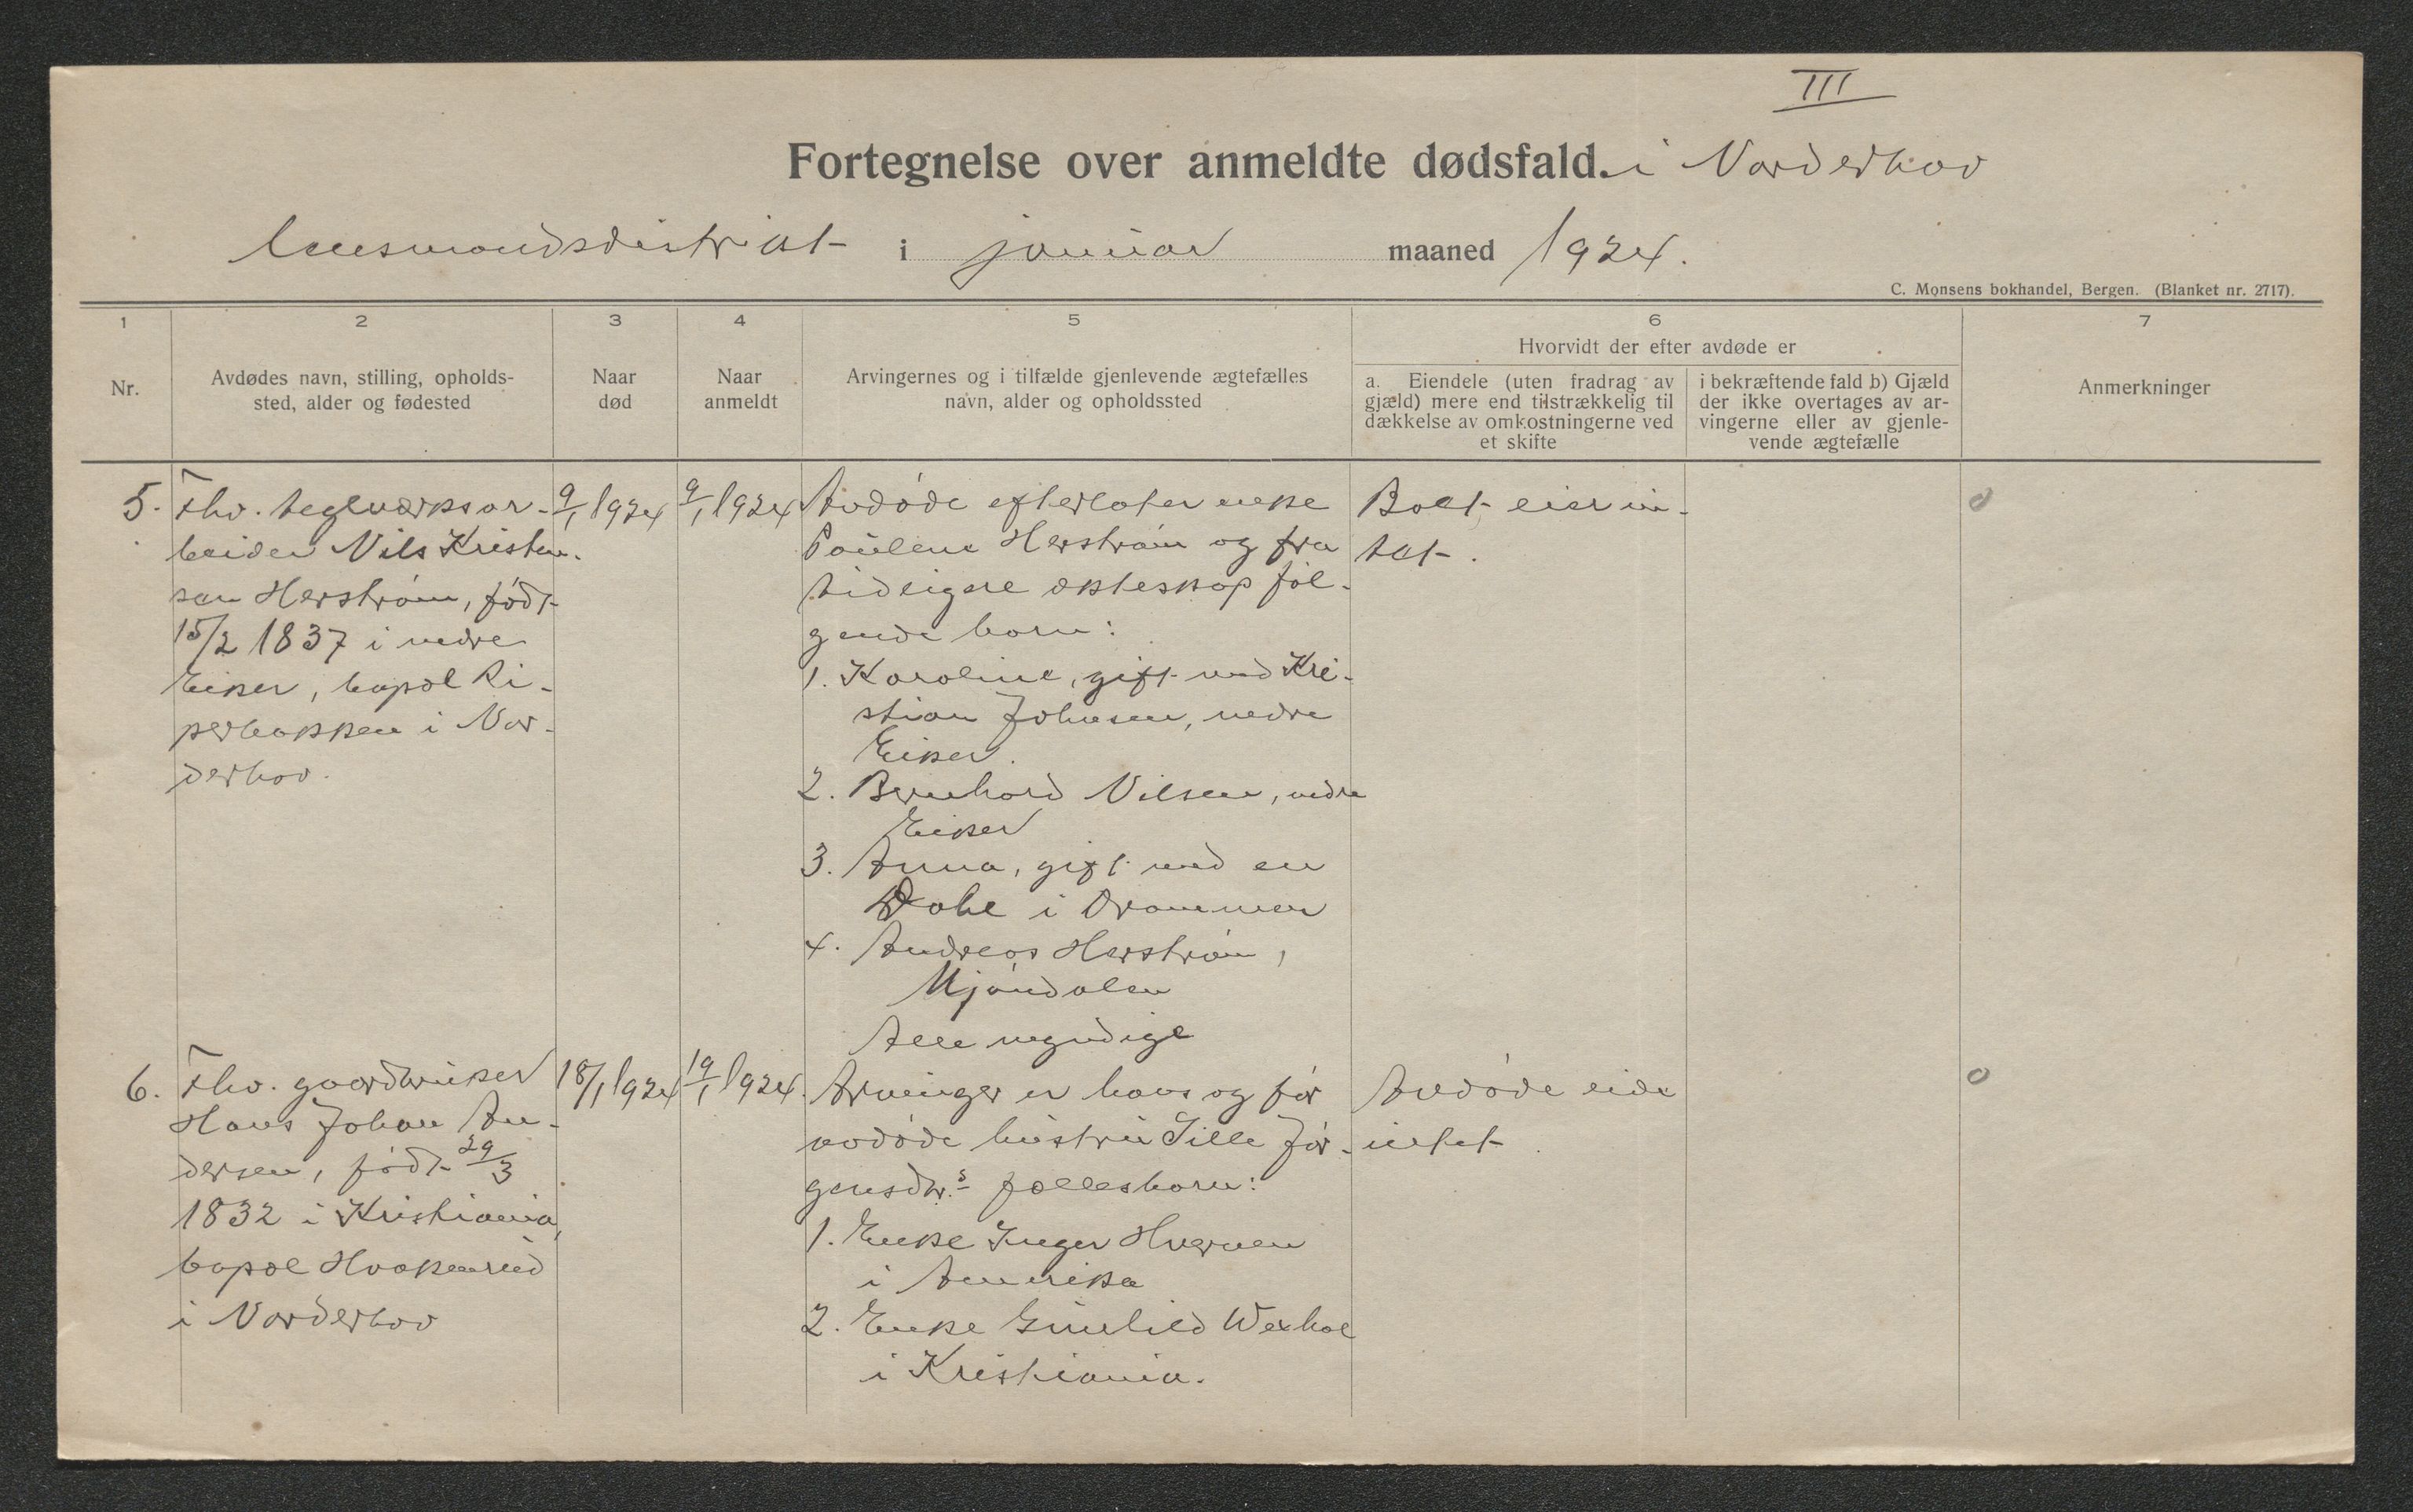 III
Fortegnelse over anmeldte dødsfald. i Norderhov
lensmandsdistrikt i januar maaned 1924.
C. Monsens bokhandel, Bergen. (Blanket nr. 2717).
1 2 3 4 5 6 7
Nr.
Avdødes navn, stilling, opholds-
sted, alder og fødested
Naar
død
Naar
anmeldt
Arvingernes og i tilfælde gjenlevende ægtefælles
navn, alder og opholdssted
Hvorvidt der efter avdøde er
a. Eiendele (uten fradrag av
gjæld) mere end tilstrækkelig til
dækkelse av omkostningerne ved
et skifte
i bekræftende fald b) Gjæld
der ikke overtages av ar-
vingerne eller av gjenle-
vende ægtefælle
Anmerkninger
5.
Fhv. teglværksar-
beider Nils Kristen-
sen Herstrøm, født
15/2 1837 i nedre
Eiker, bopæl Ri-
perbakken i Nor-
derhov.
9/1 1924
9/1 1924
Avdøde efterlater enke
Pauline Herstrøm og fra
tidligere ekteskap føl-
gende barn:
1. Karoline, gift med Kri-
stian Johnsen, nedre
Eiker.
2. Bernhard Nilsen, nedre
Eiker
3. Anna, gift med en
Dahl i Drammen
4. Andreas Herstrøm,
Mjøndalen
Alle myndige
Boet eier in-
tet.
o
6.
Fhv. gaardbruker
Hans Johan An-
dersen, født 29/3
1832 i Kristiania,
bopæl Haakenrud
i Norderhov
18/1 1924
19/1 1924.
Arvinger er hans og før
avdøde hustru Sille Jør-
gensdtr.s fællesbarn:
1. Enke Inger Hvernen
i Amerika
2. Enke Gunhild Wexhal
i Kristiania.
Avdøde eide
intet
o